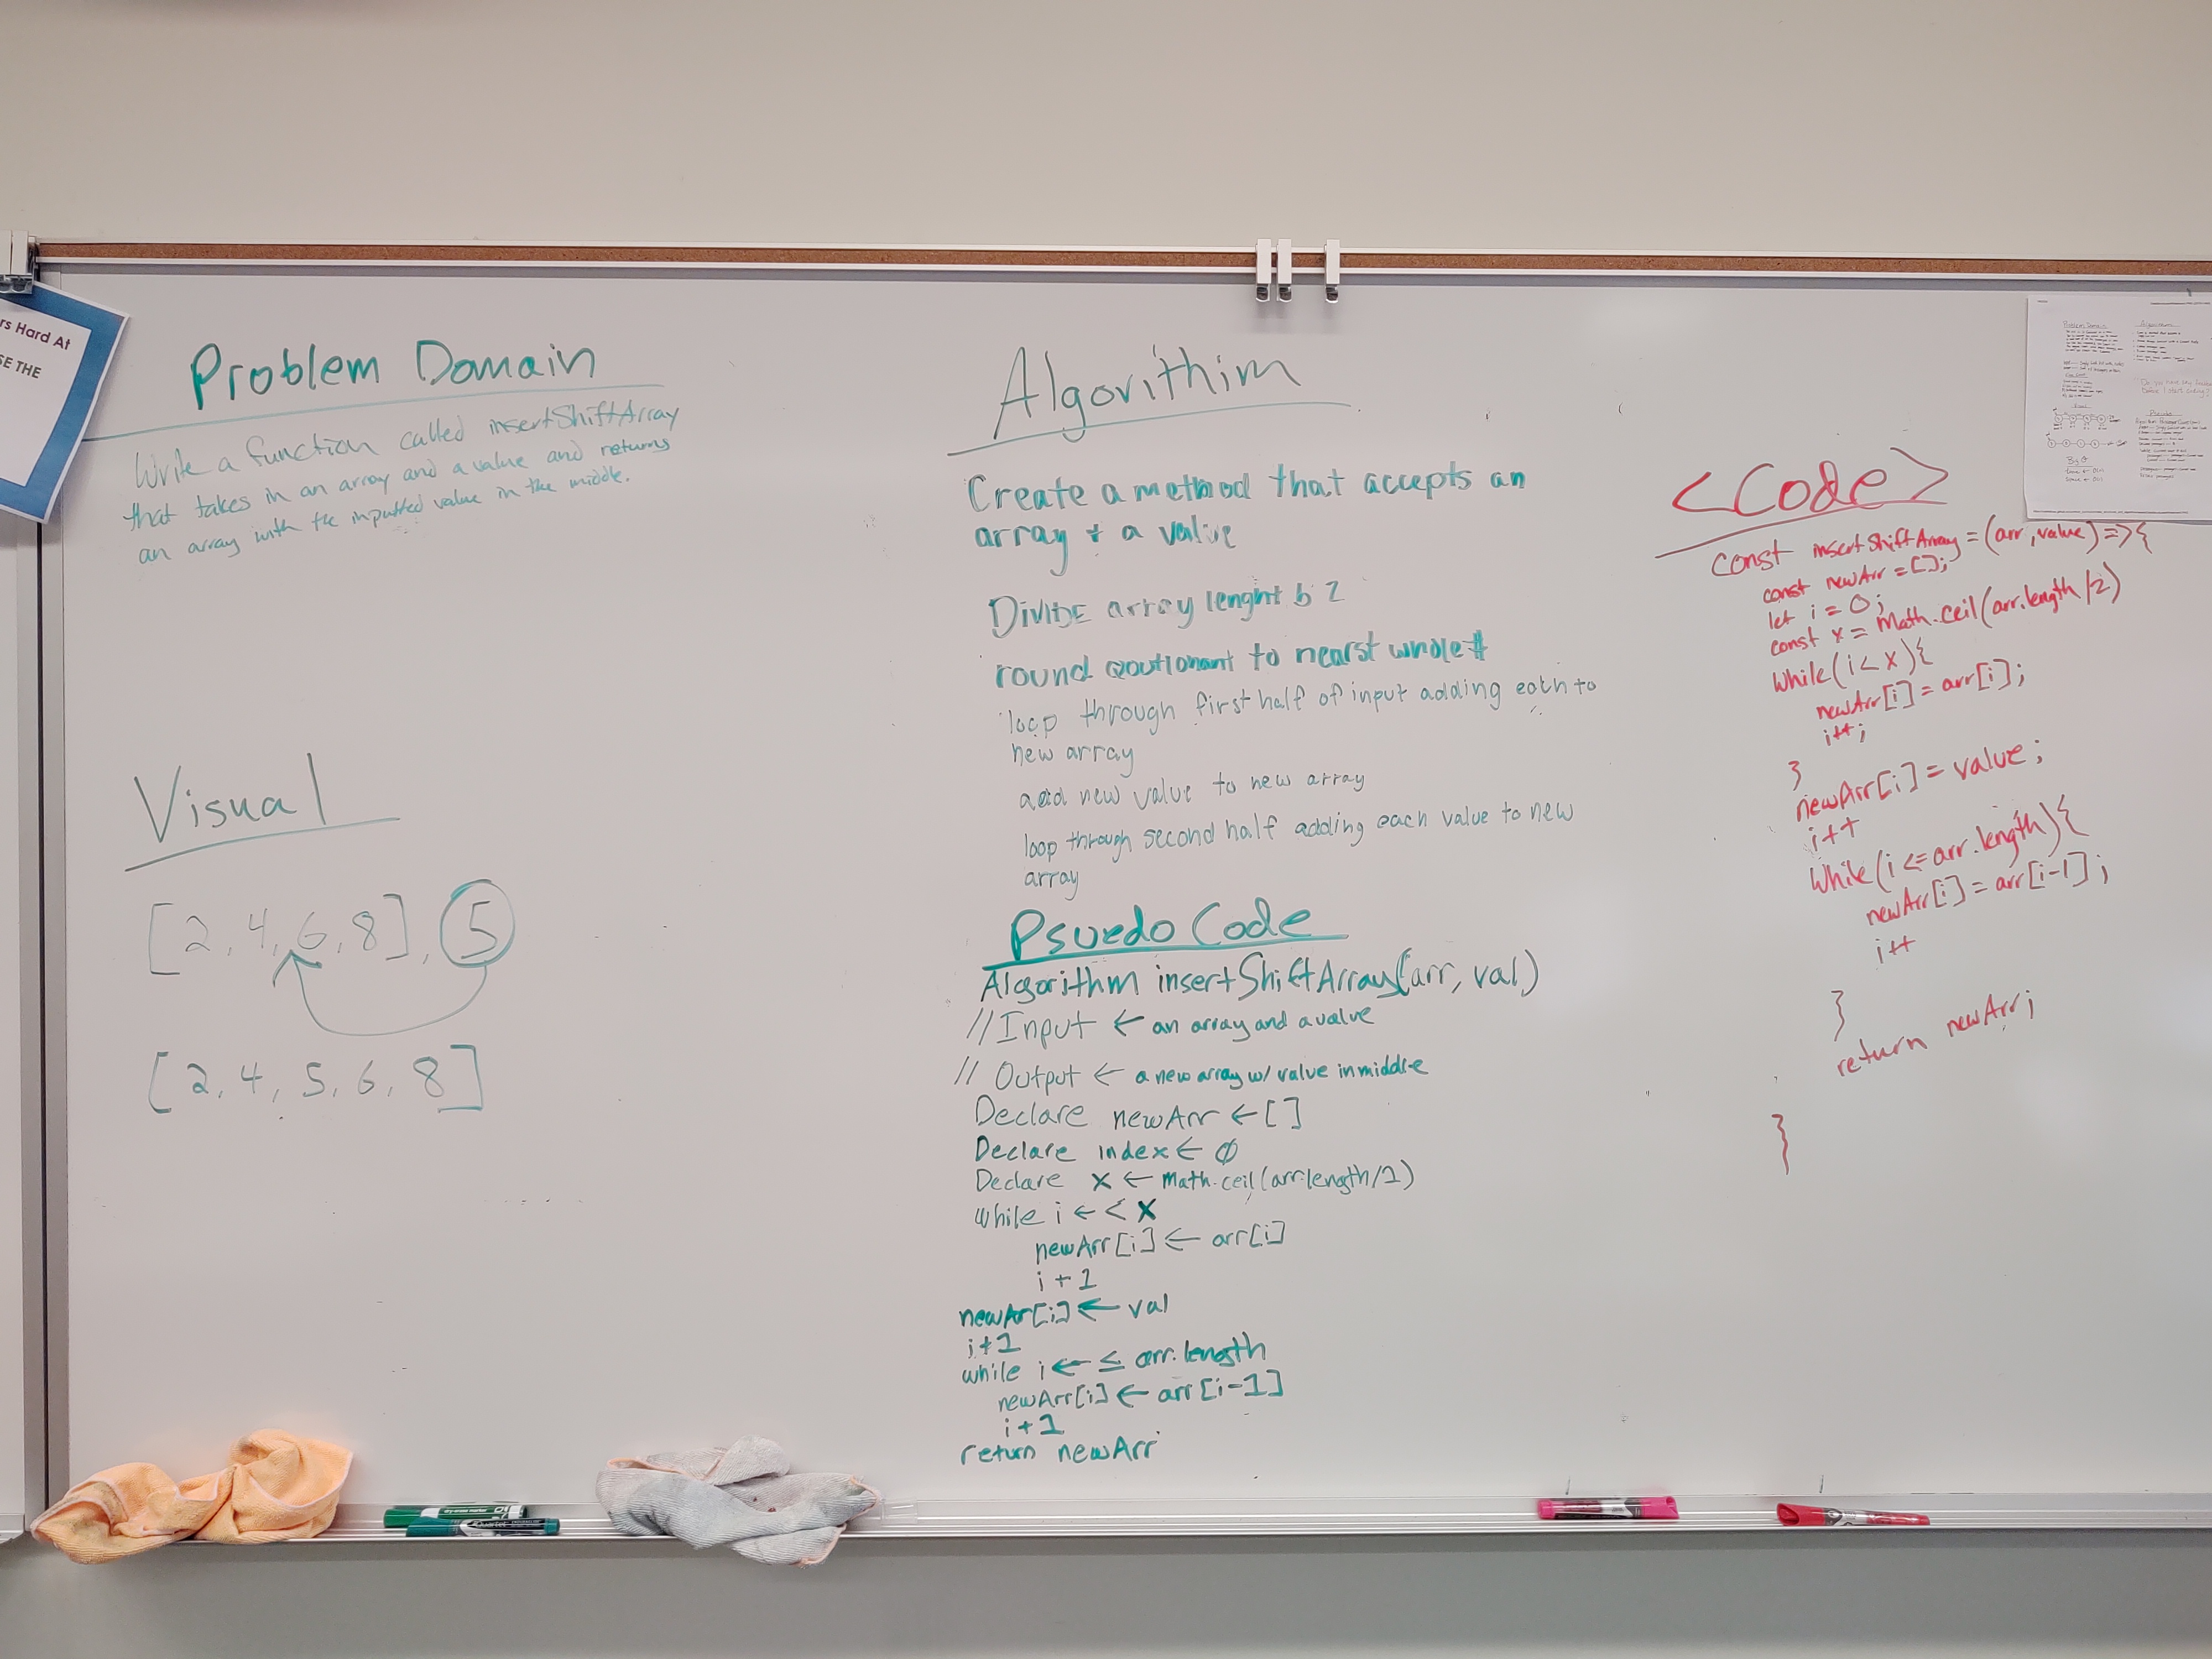 rs Hard At
SE THE
Problem Domain
Write a function called insertShiftArray
that takes in an array and a value and returns
an array with the inputted value in the middle.
Visual
[2, 4, 6, 8], 5
[2, 4, 5, 6, 8]
Algorithim
Create a method that accepts an
array + a value
Divide array lenght b 2
round qoutionant to nearst whole #
loop through first half of input adding each to
new array
add new value to new array
loop through second half adding each value to new
array
Psuedo Code
Algorithm insertShiftArray(arr, val)
// Input ← an array and a value
// Output ← a new array w/ value in middle
Declare newArr ← []
Declare index ← 0
Declare x ← Math.ceil(arr.length/2)
while i ← < x
newArr[i] ← arr[i]
i + 1
newArr[i] ← val
i + 1
while i ← ≤ arr.length
newArr[i] ← arr[i-1]
i + 1
return newArr
<Code>
const insertShiftArray = (arr, value) => {
const newArr = [];
let i = 0;
const x = Math.ceil(arr.length/2)
while(i < x){
newArr[i] = arr[i];
i++;
}
newArr[i] = value;
i++
while(i <= arr.length){
newArr[i] = arr[i-1];
i++
}
return newArr;
}
Problem Domain
Visual
Big O
Pseudo